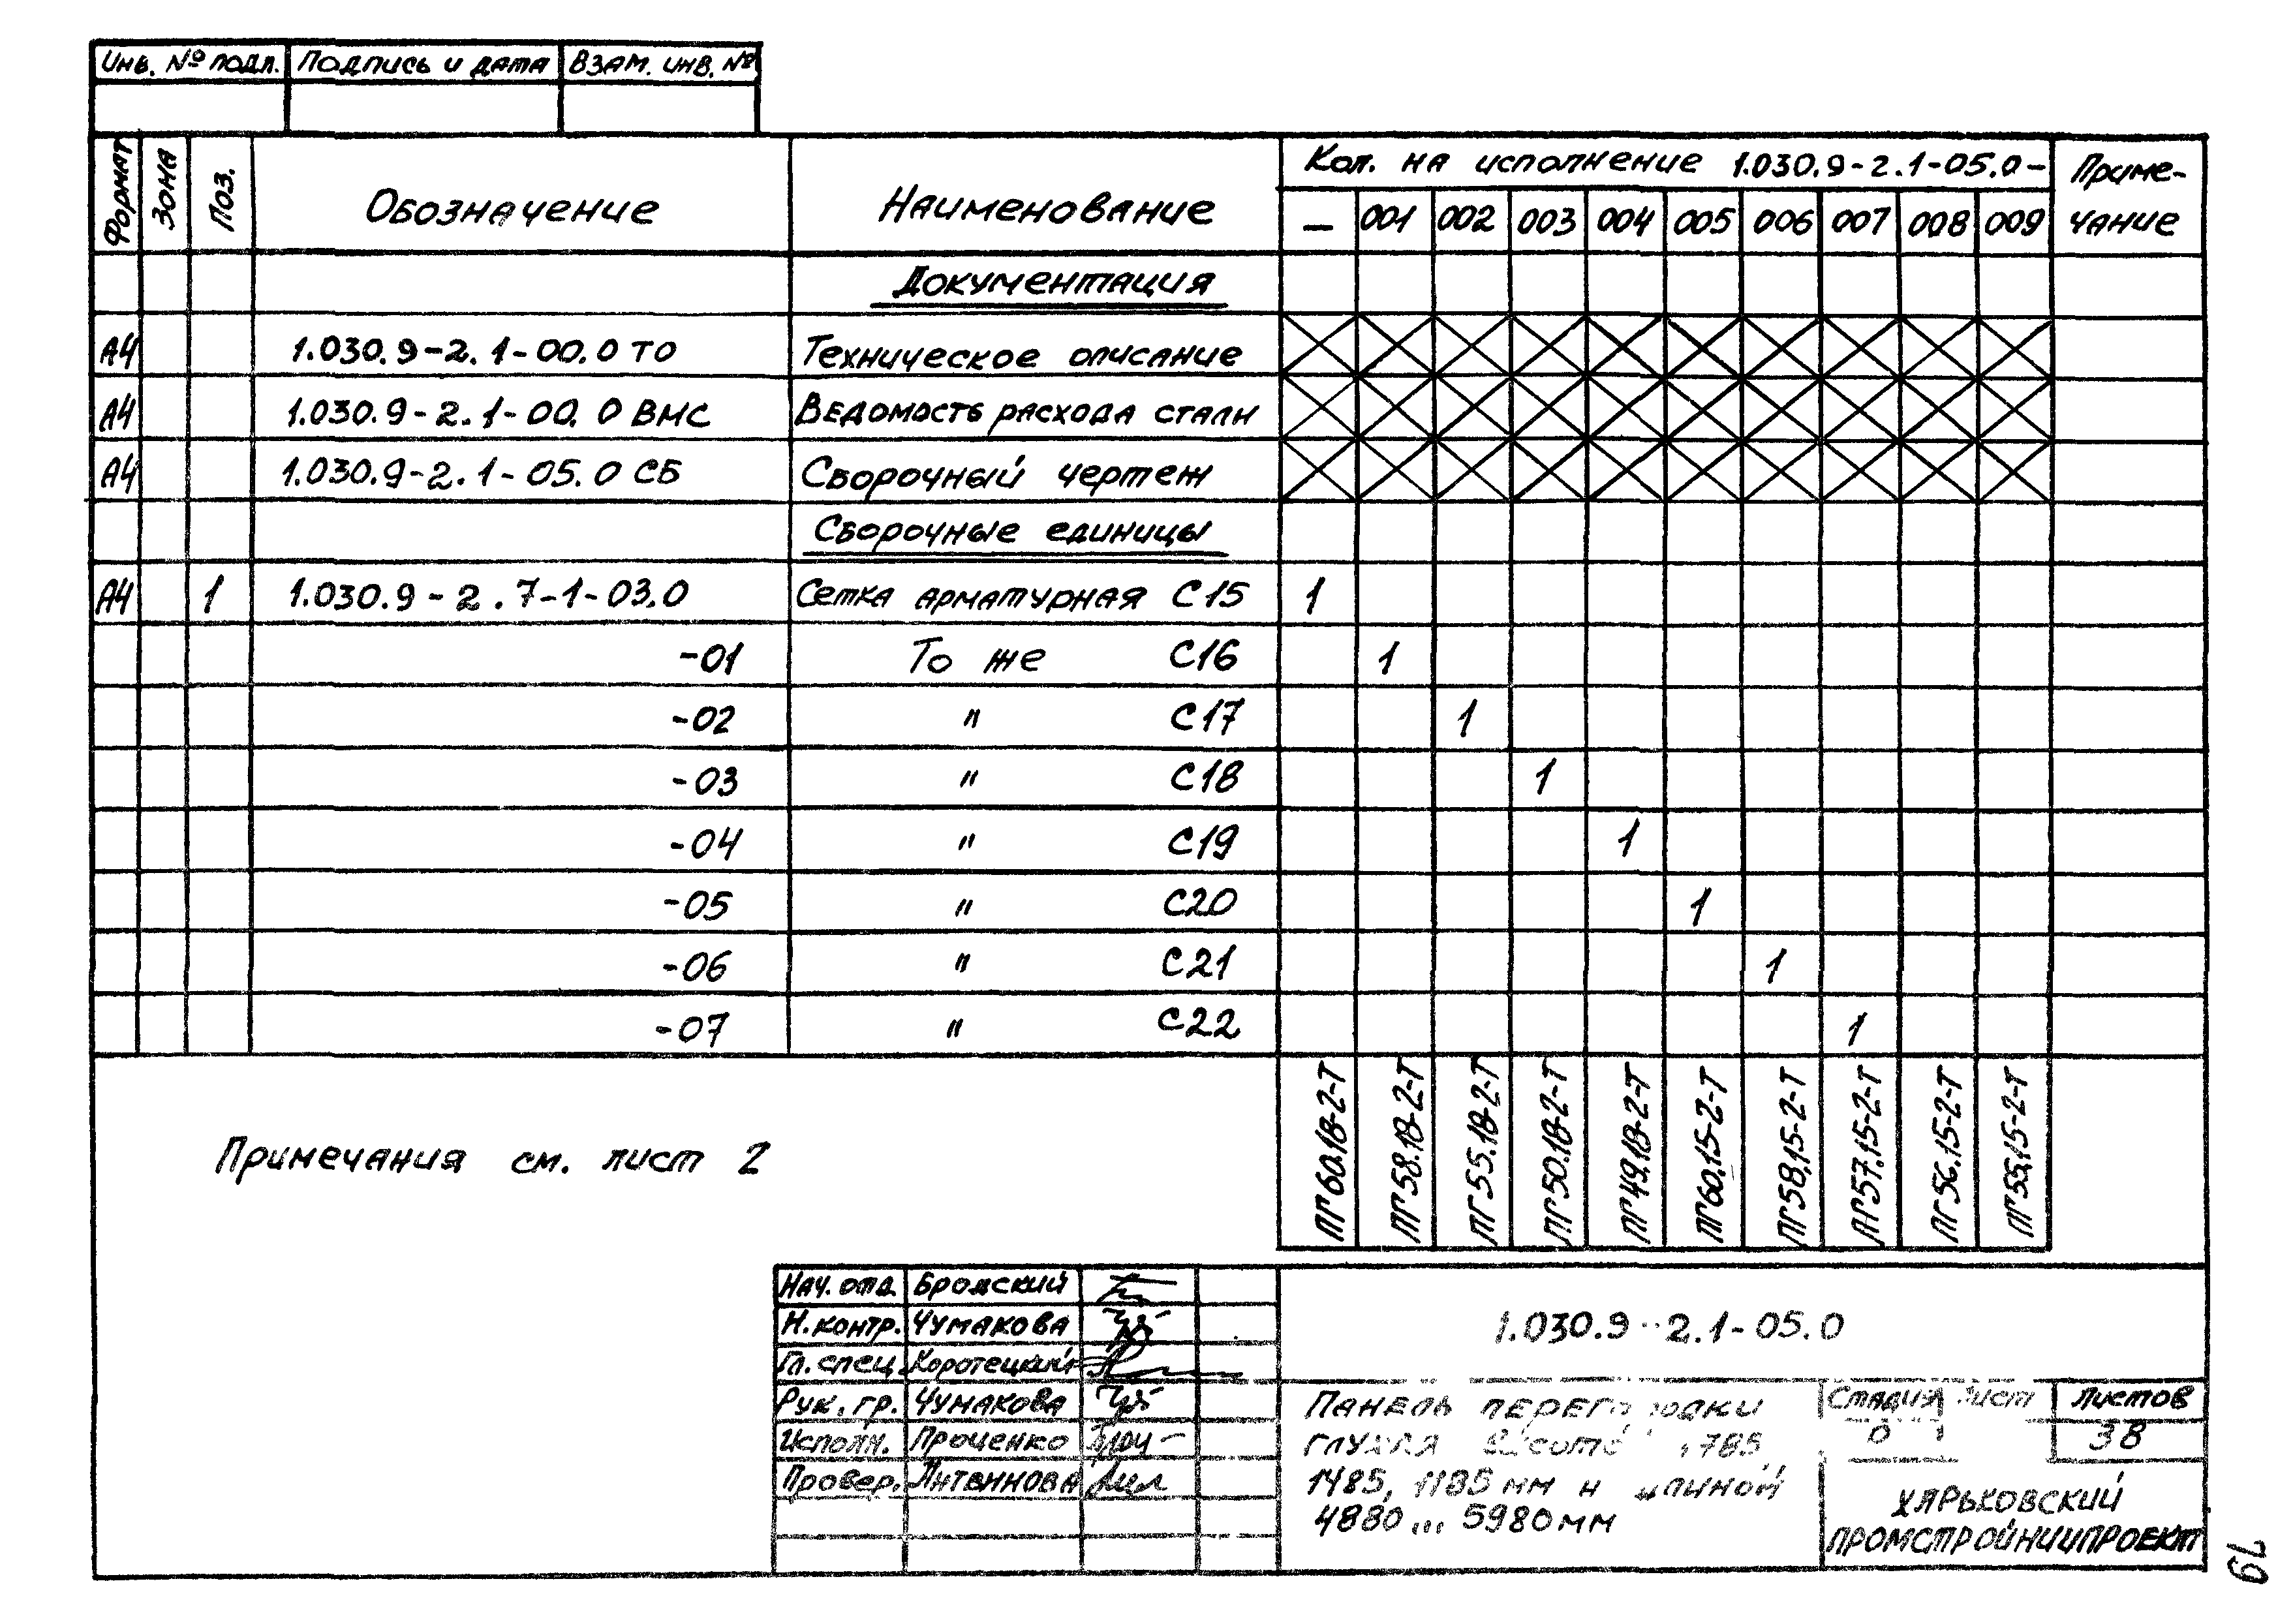 Инв. № подл. Подпись и дата Взам. инв. №
Формат Зона Поз. Обозначение Наименование Кол. на исполнение 1.030.9-2.1-05.0- Приме-
чание
– 001 002 003 004 005 006 007 008 009
Документация
А4 1.030.9-2.1-00.0 ТО Техническое описание
А4 1.030.9-2.1-00.0 ВМС Ведомость расхода стали
А4 1.030.9-2.1-05.0 СБ Сборочный чертеж
Сборочные единицы
А4 1 1.030.9-2.7-1-03.0 Сетка арматурная С15 1
-01 То же С16 1
-02 " С17 1
-03 " С18 1
-04 " С19 1
-05 " С20 1
-06 " С21 1
-07 " С22 1
ПГ60.18-2-Т ПГ58.18-2-Т ПГ55.18-2-Т ПГ50.18-2-Т ПГ49.18-2-Т ПГ60.15-2-Т ПГ58.15-2-Т ПГ57.15-2-Т ПГ56.15-2-Т ПГ55.15-2-Т
Примечания см. лист 2
Нач. отд. Бродский
Н. контр. Чумакова
Гл. спец. Коротецкий
Рук. гр. Чумакова
Исполн. Проценко
Провер. Литвинова
1.030.9-2.1-05.0
Панель перегородки
глухая 1785,
1485, 1185 мм и длиной
4880... 5980мм
Стадия Лист Листов
Р 38
Харьковский
Промстройниипроект
79